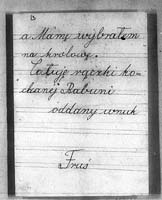 a Mamę wybrałem
na królowę.
Całuję rączki ko-
chanej Babuni
oddany wnuk
Fruś